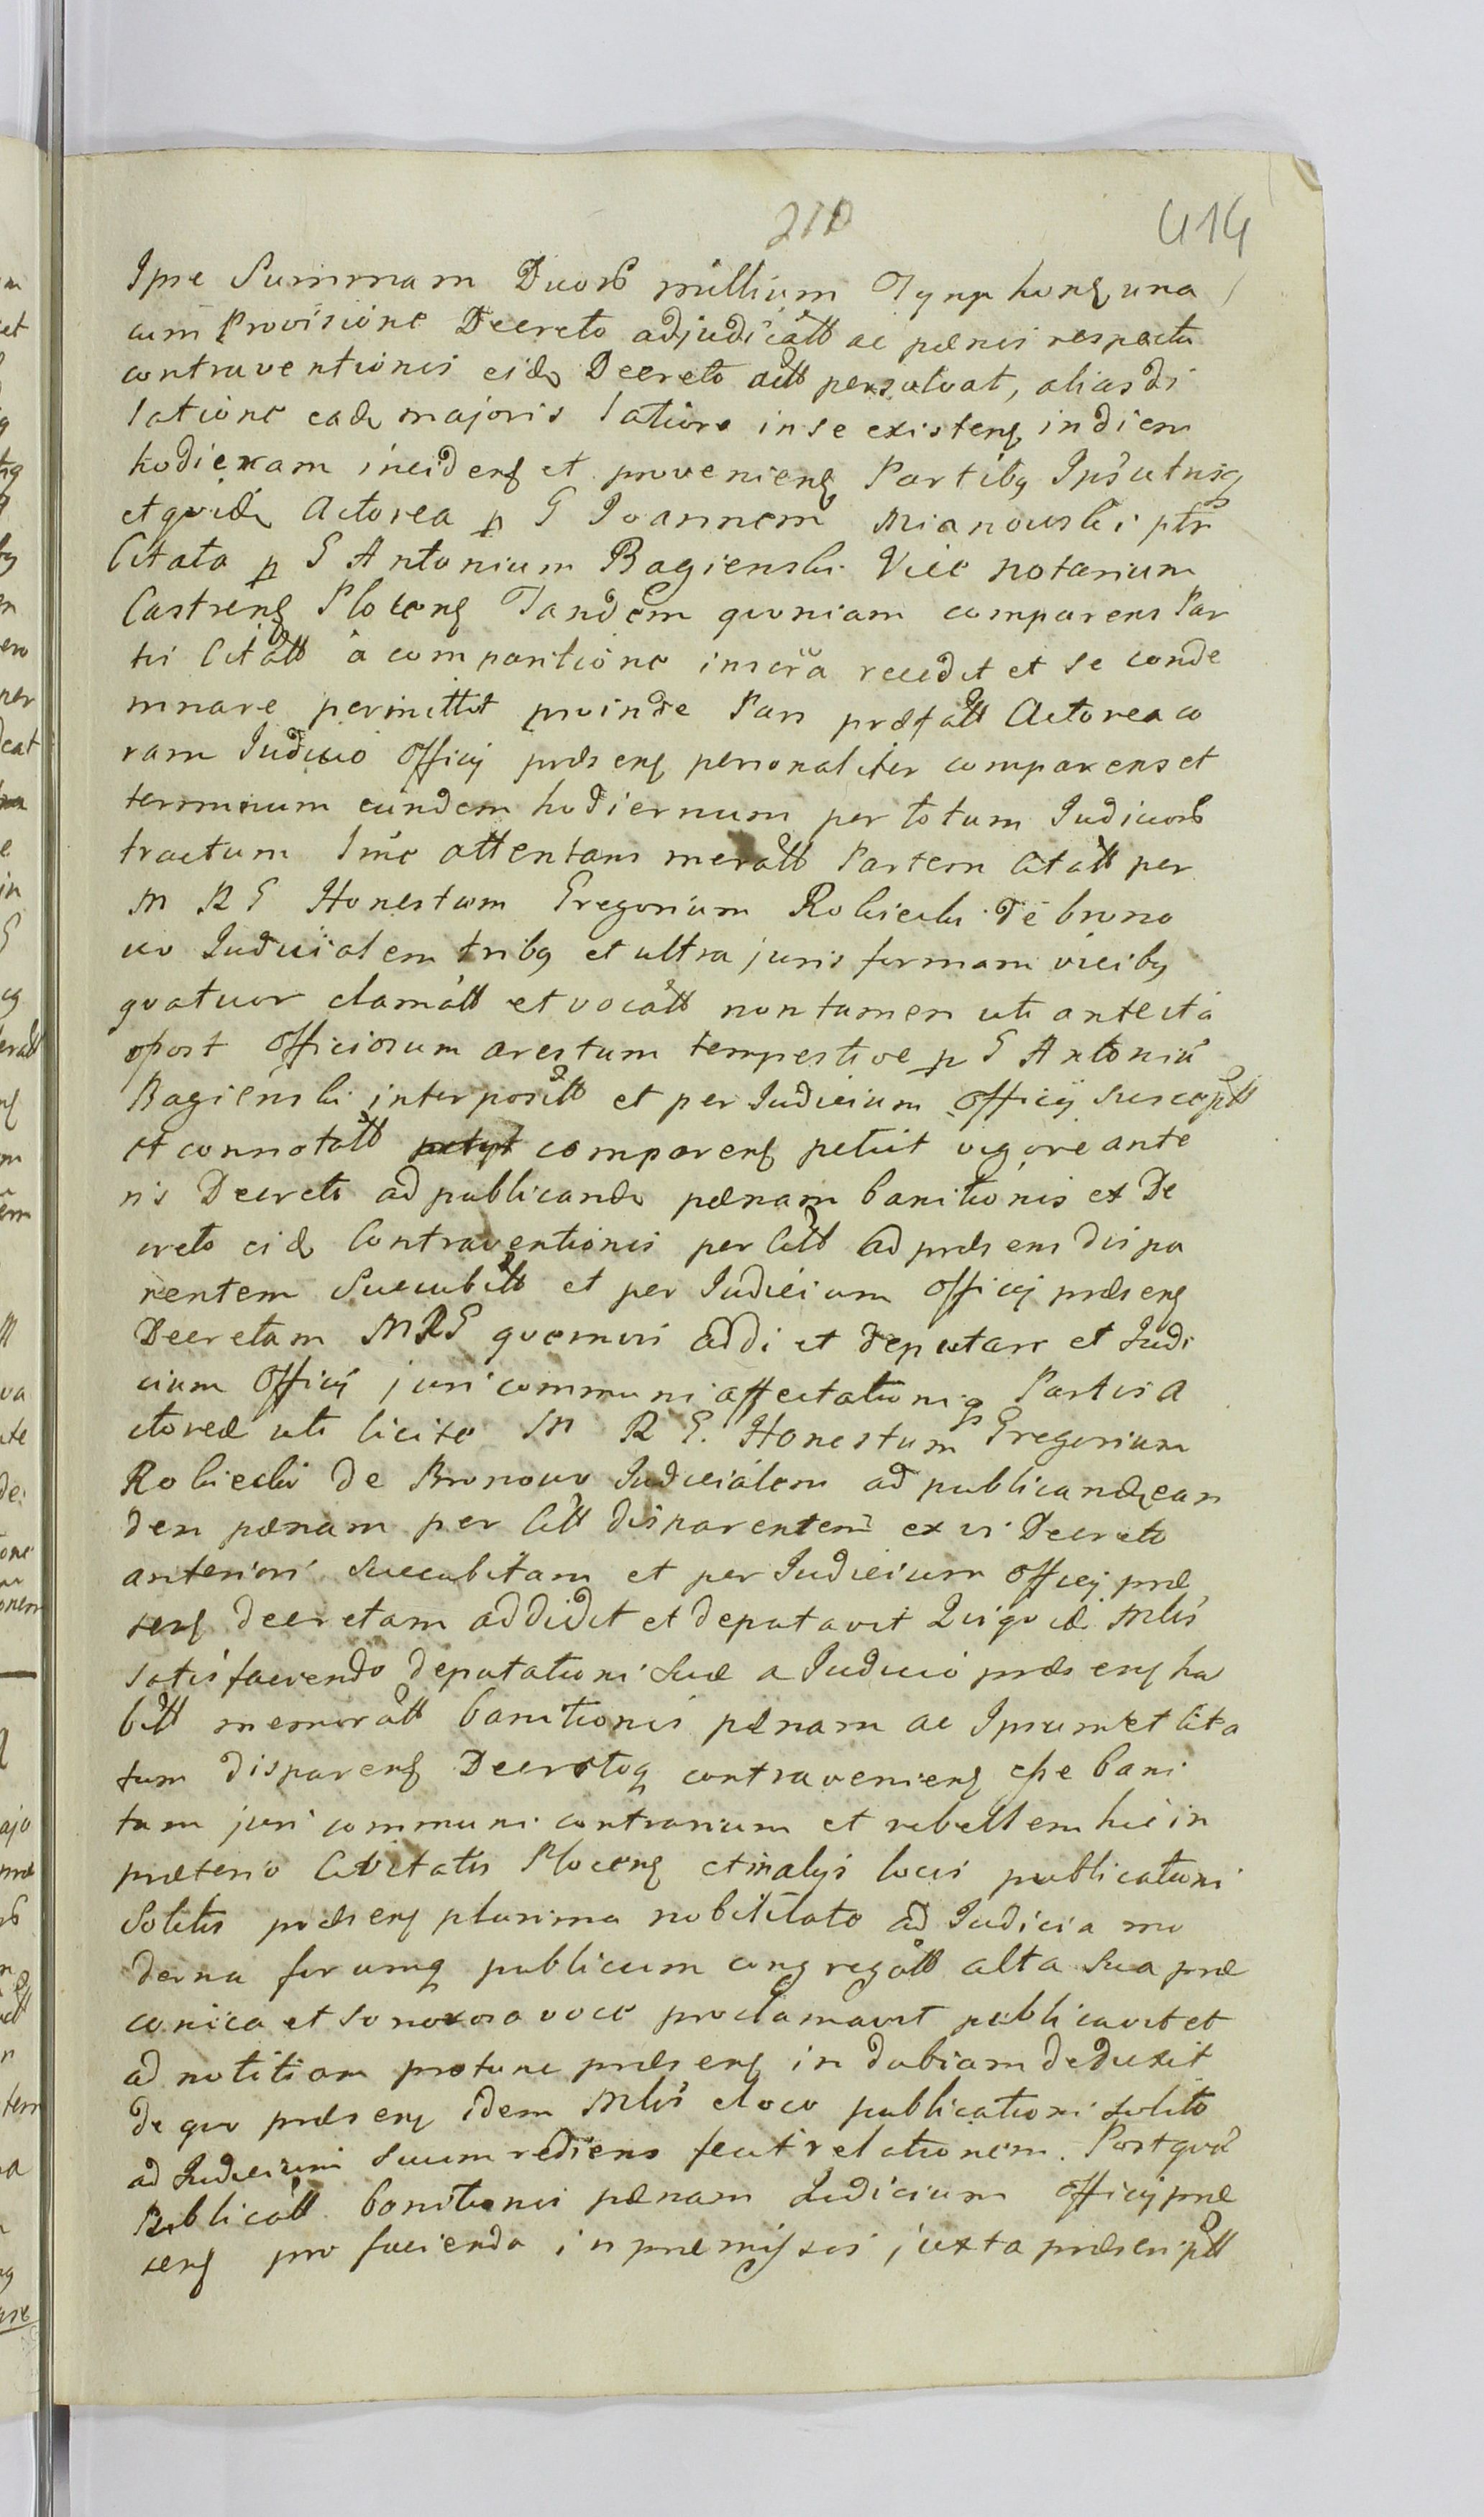 210
414
Ipse Summam Duorb millium Tymphong una
cum Provisione Decreto adjudicatt ac pænis respectu
contraventionis eide Decreto actt persolvat, alias di
latione eade majoris lations in se existeng in diem
hodiernam incideng et provenieng Partibg Ipsutnisq
et quide Actorea p G Joannem Mianowski ptr
Citata p G Antonium Bagienski Vice notarium
Castreng Ploceng Tandem quoniam comparens Par
tis Citatt a comparitione inscra recedit et se conde
mnare permittit proinde Pars præfatt Actorea co
ram Iudicio Officij præseng personaliter comparens et
terminum eundem hodiernum per totum Iudiciorb
tractum Ime attentans meratt Partem Citatt per
M R G Honestum Gregorium Robiecki de brono
wo Iudicialem tribg et ultra juris formam vicibg
quatuor clamatt et vocatt non tamen uti antecita
post Officiosum arestum tempestive p G Antoniu
Bagienski interpositt et per Iudicium Officij suscoptt
et connotatt compareng petiit vigore ante
ris Decreti ad publicande pænam banitionis ex De
creto eide Contraventionis per Citt ad præsens dispa
rentem Succubitt et per Iudicium Officij præseng
Decretam MRG quemvis addi et deputari et Iudi
cium Officij juri communi affectationiq Partis A
ctoreæ uti licite M R G. Honestum Gregorium
Robiecki de Bronowo Iudicialem ad publicande ean
dem pænam per Citt disparentem ex vi Decreto
anteriori succubitam et per Iudicium Officij præ
seng decretam addidit et deputavit Qui quide Mlis
satisfaciendo deputationi suæ a Iudicio præseng ha
bitt memoratt banitionis pænam ac Ipsumet Cita
tum dispareng Decretoq contravenieng esse bani
tum juri communi contrarium et rebellem hic in
prætorio Civitatis Ploceng et in alijs locis publicationi
Solitis præseng plurima nobilitate ad Iudicia mo
derna forumq publicum congregatt alta sua præ
conica et sonorosa voce proclamavit publicavit et
ad notitiam protunc præseng in dubiam deduxit
de quo præseng idem Mlis e loco publicationi solito
ad Iudicium suum rediens fecit relationem. Postqua
Publicatt banitionis pænam Iudicium Officij præ
seng pro facienda in præmissis juxta præscriptt